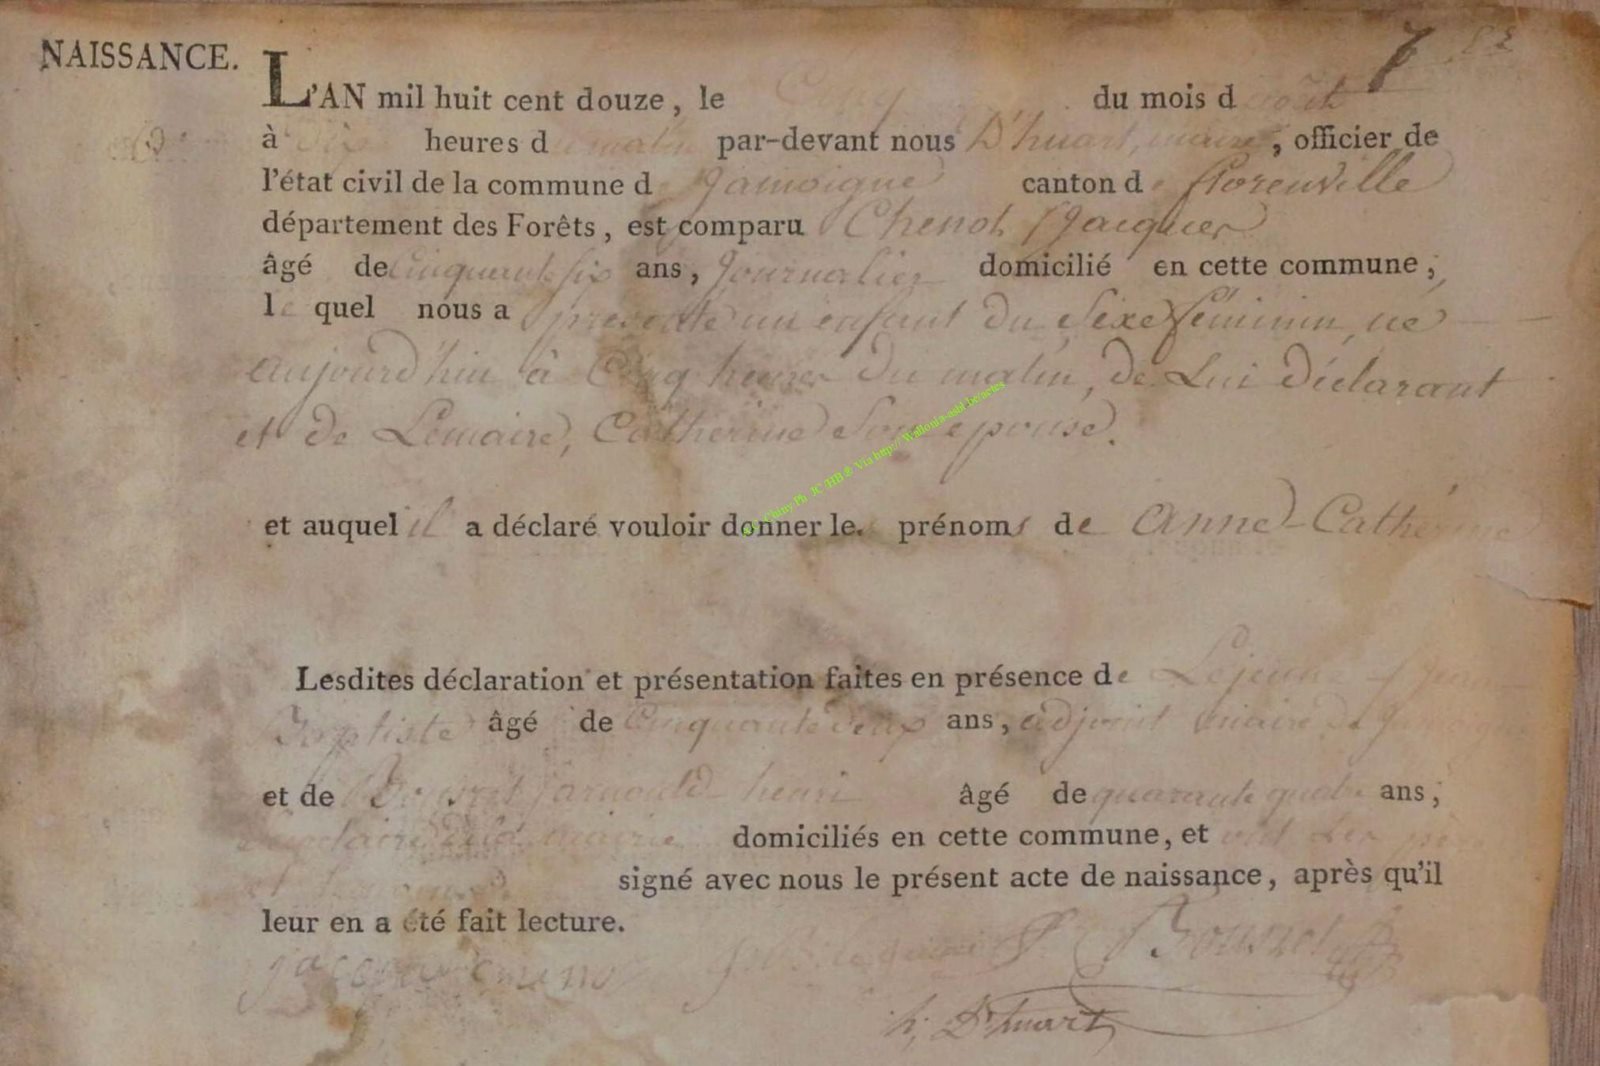 NAISSANCE.
7 82
L'AN mil huit cent douze, le Cinq du mois d'août
à Dix heures du matin par-devant nous D'huart, maire, officier de
l'état civil de la commune de Jamoigne canton de florenville
département des Forêts, est comparu Chenot, Jacques
âgé de Cinquante six ans, Journalier domicilié en cette commune,
lequel nous a présenté un enfant du Sexe féminin, né
aujourd'hui à Cinq heures du matin, de Lui Déclarant
et de Lemaire, Catherine Son epouse.
C Chiny Ph JC/HB ® Via http:// Wallonia-asbl.be/actes
et auquel il a déclaré vouloir donner les prénoms de Anne-Catherine
Lesdites déclaration et présentation faites en présence de Lejeune, Jean
Baptiste âgé de Cinquante deux ans, adjoint maire de Jamoigne
et de arnould henri âgé de quarante quatre ans,
mairie domiciliés en cette commune, et ont les père
et témoins signé avec nous le présent acte de naissance, après qu'il
leur en a été fait lecture.
h. D'huart